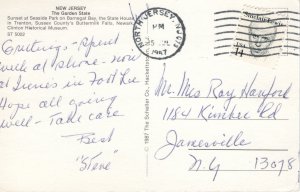 NEW JERSEY
The Garden State
Sunset at Seaside Park on Barnegat Bay, the State House
in Trenton, Sussex County's Buttermilk Falls, Newark,
Clinton Historical Museum
ST 5002
Greetings - Spent
week at shore - now
at Junes in Fort Lee
Hope all going
well - Take care
Best
"Steve"
© 1987 The Scheller Co., Hackettstown
NORTH JERSEY
PM
1987
14
Mrs Roy Hanford
1184 Kimber Rd
Jamesville
N.Y 13078